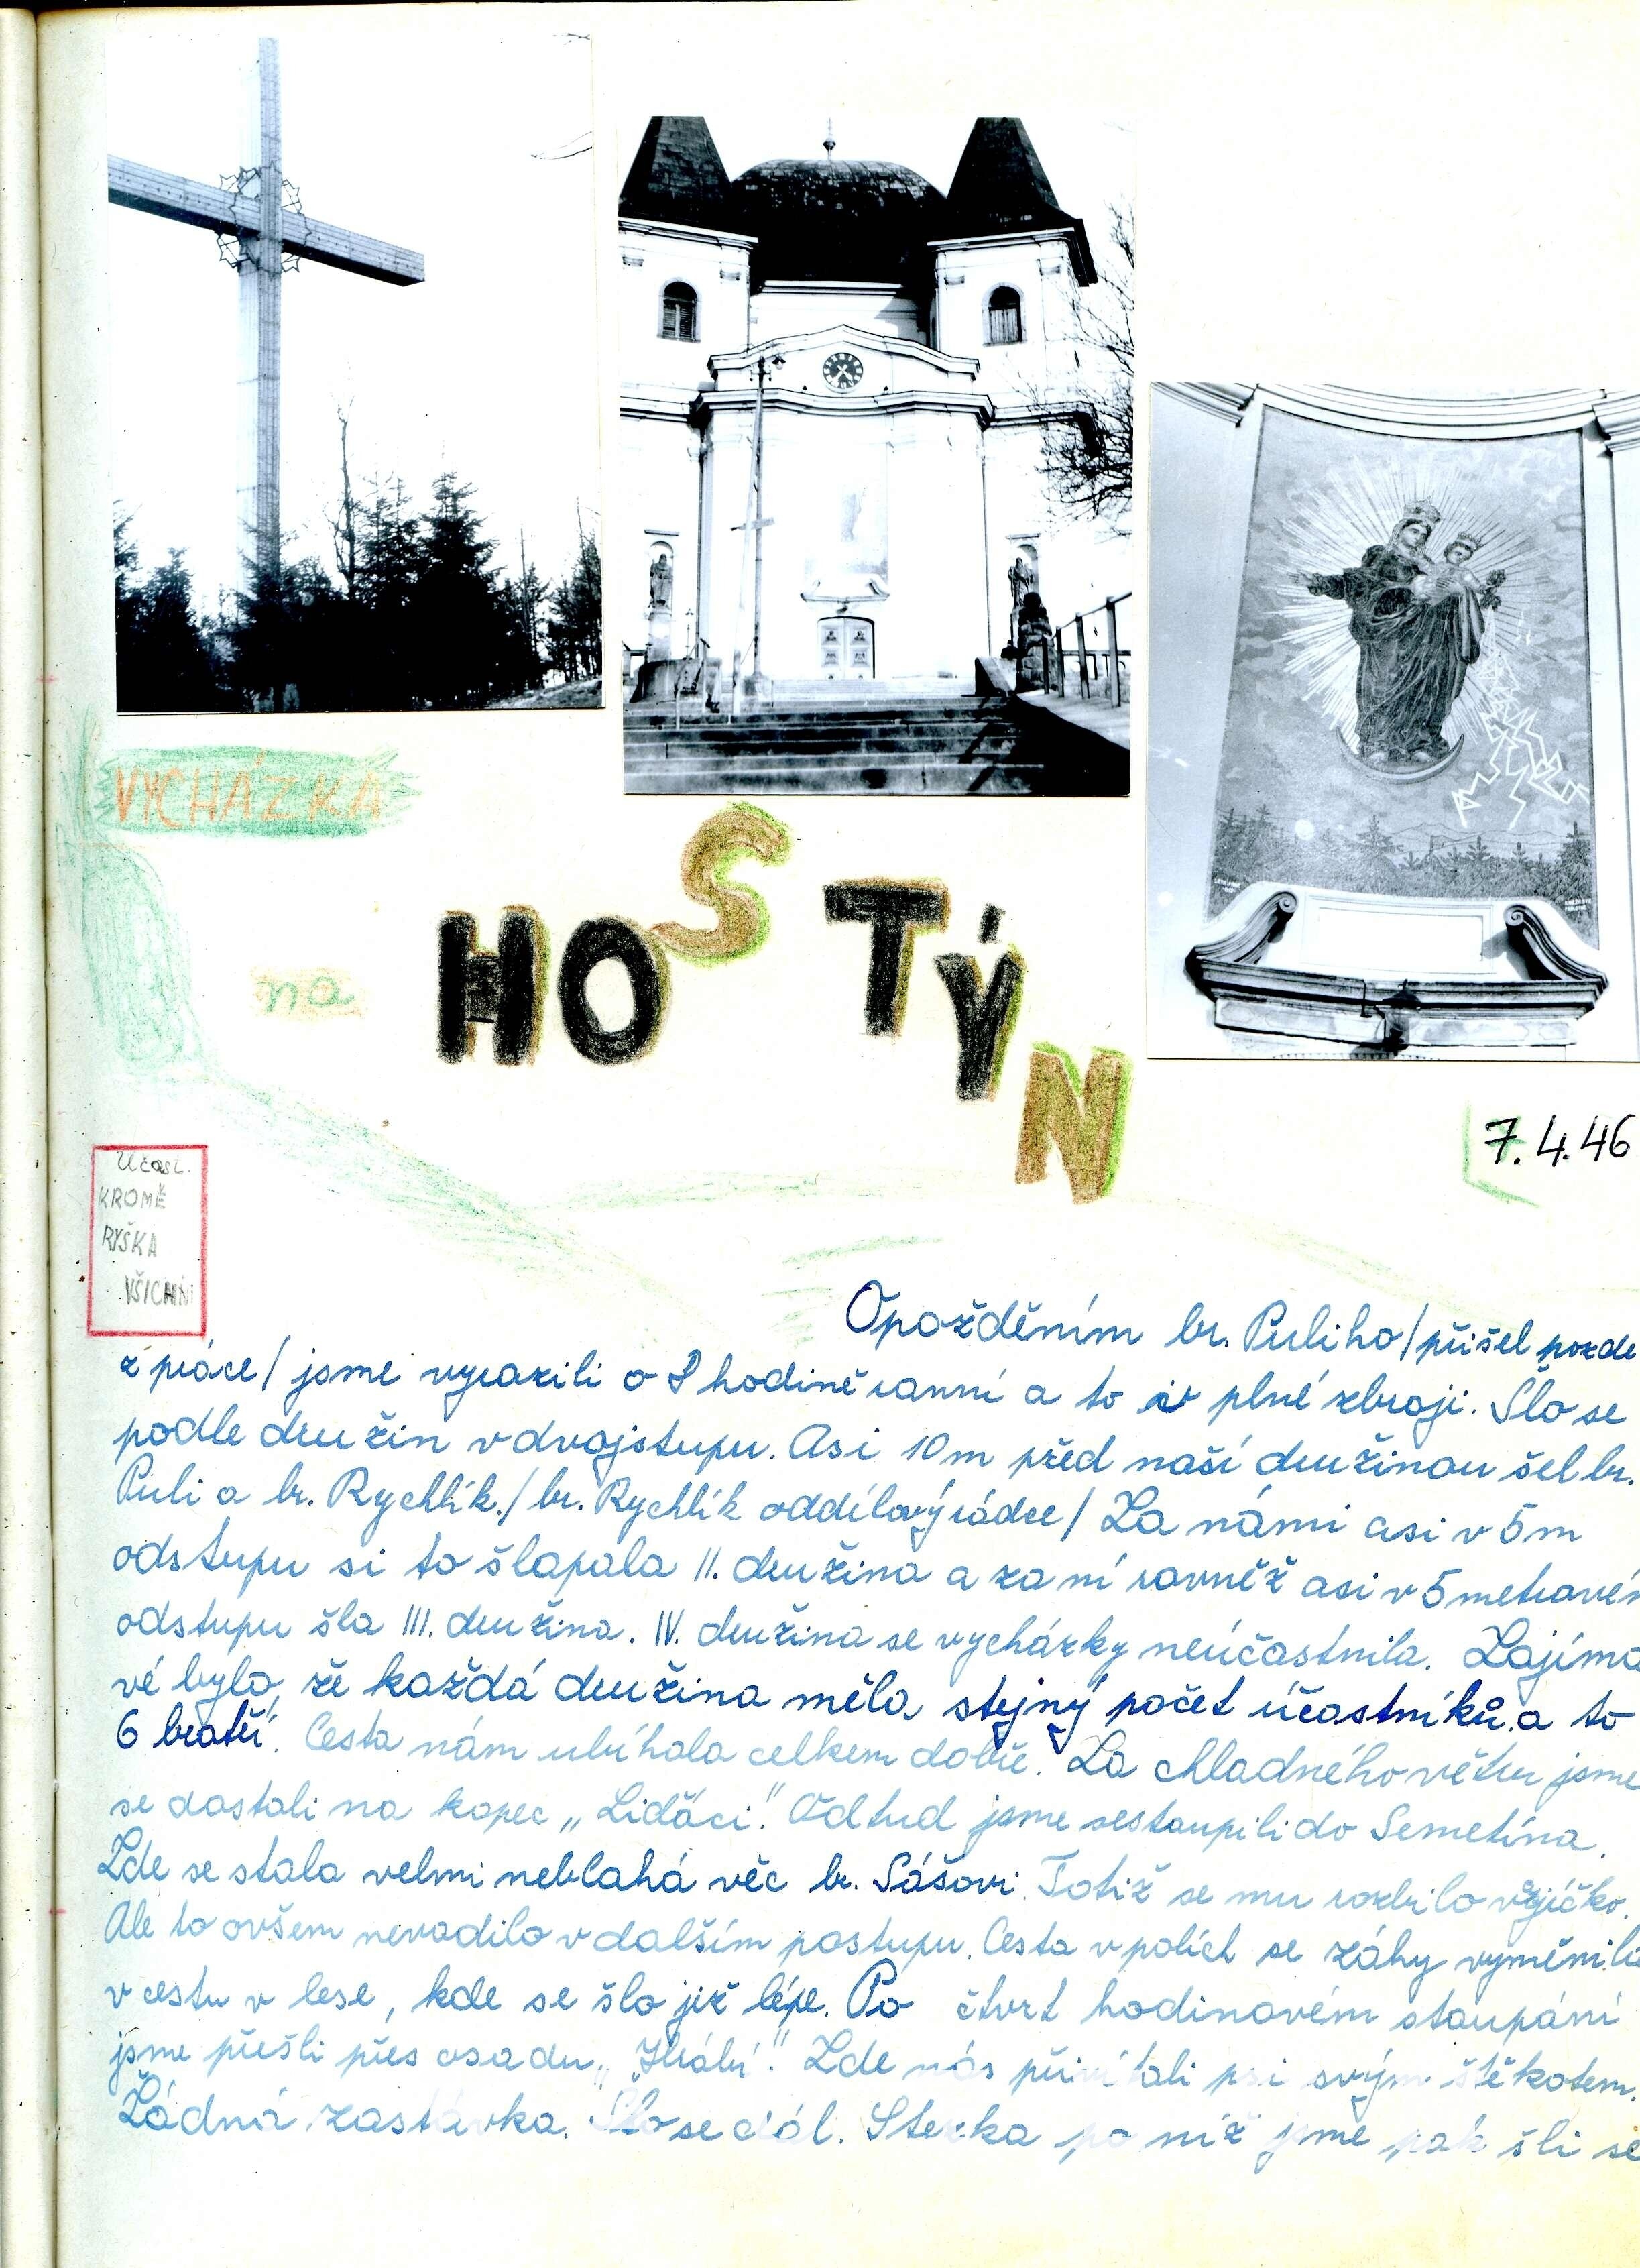 VYCHÁZKA
na
HOSTÝN
7.4.46
Účast.
KROMĚ
RYŠKA
VŠICHNI
Opožděním br. Puliho /přišel pozdě
z práce/ jsme vyrazili o 8 hodině ranní a to v plné zbroji. Šlo se
podle družin v dvojstupu. Asi 10 m před naší družinou šel br.
Puli a br. Rychlík. /br. Rychlík oddílový rádce/ Za námi asi v 5 m
odstupu si to šlapala II. družina a za ní rovněž asi v 5 metravém
odstupu šla III. družina. IV. družina se vycházky neúčastnila. Zajíma
vé bylo, že každá družina měla stejný počet účastníků a to
6 bratří. Cesta nám ubíhala celkem dobře. Za chladného větru jsme
se dostali na kopec „Liďáci." Odtud jsme sestoupili do Semetína.
Zde se stala velmi neblahá věc br. Sášovi. Totiž se mu rozbilo vajíčko.
Ale to ovšem nevadilo v dalším postupu. Cesta v polích se záhy vyměnila
v cestu v lese, kde se šlo již lépe. Po čtvrt hodinovém stoupání
jsme přešli přes osadu „ ." Zde nás přivítali psi svým štěkotem.
Žádná zastávka. Šlo se dál. Stezka po níž jsme pak šli se